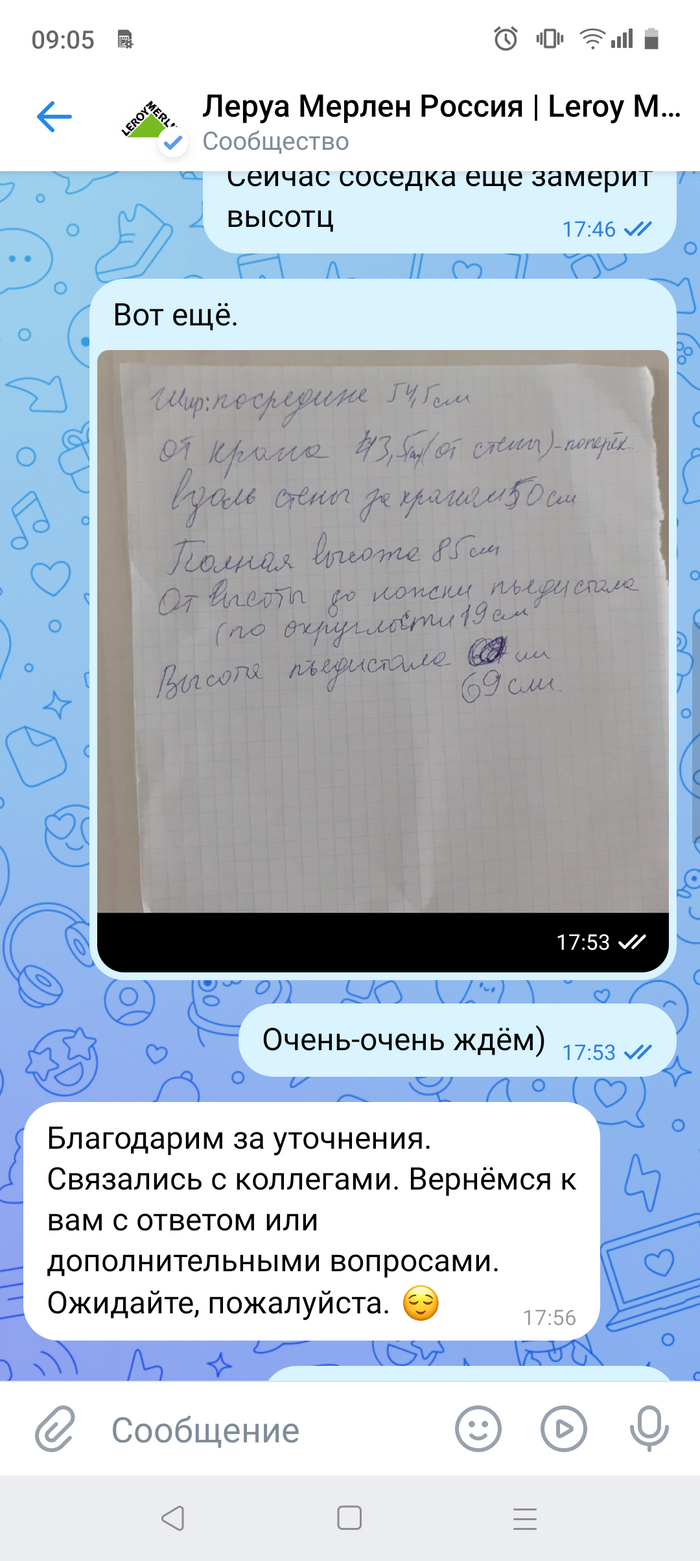 09:05
LEROY MERLIN
Леруа Мерлен Россия | Leroy M...
Сообщество
Сейчас соседка ещё замерит
высотц
17:46
Вот ещё.
Шир: посредине 54,5 см
от крана 43,5 см (от стены) - поперёк
вдоль стены за краном 50 см
Полная высота 85 см
От высоты до ножки пьедистала
(по округлости 19 см
Высота пьедистала см
69 см.
17:53
Очень-очень ждём)
17:53
Благодарим за уточнения.
Связались с коллегами. Вернёмся к
вам с ответом или
дополнительными вопросами.
Ожидайте, пожалуйста. 😌
17:56
Сообщение